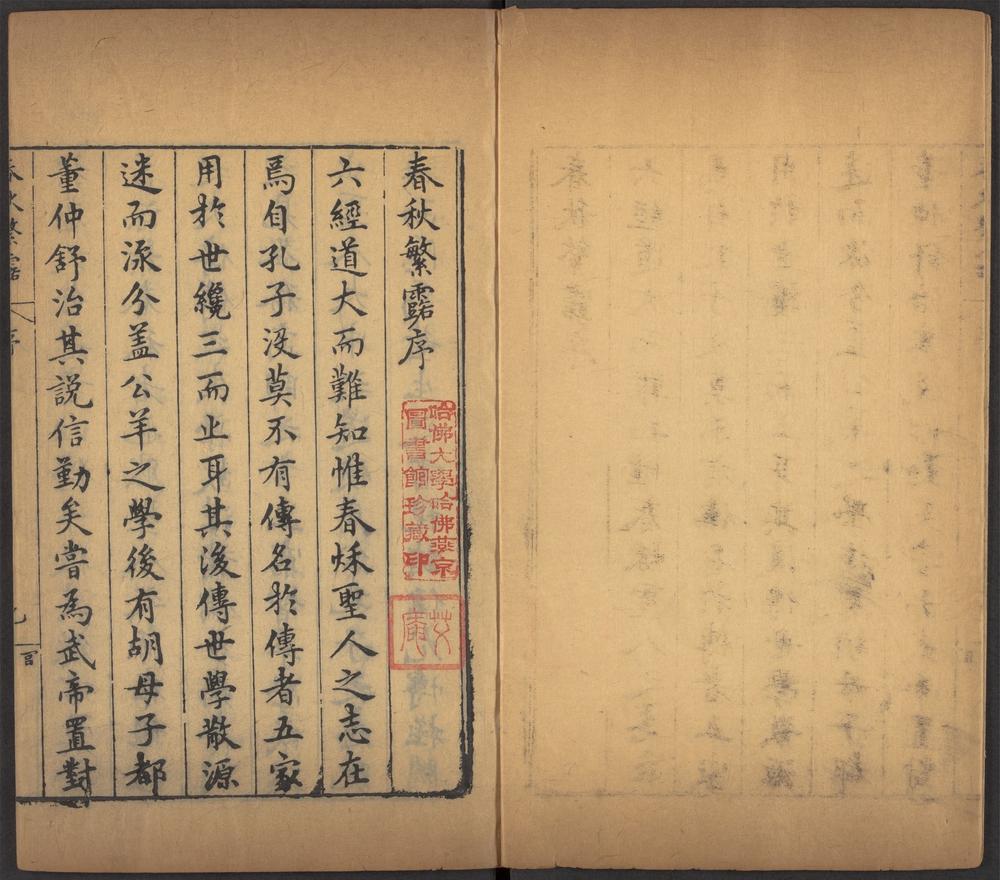 春秋繁露序
六經道大而難知惟春秌聖人之志在
焉自孔子沒莫不有傳名於傳者五家
用於世纔三而止耳其後傳世學散源
迷而泒分盖公羊之學後有胡母子都
董仲舒治其説信勤矣嘗爲武帝置對
春秋繁露
序
哈佛大學哈佛燕京
圖書館珍藏印